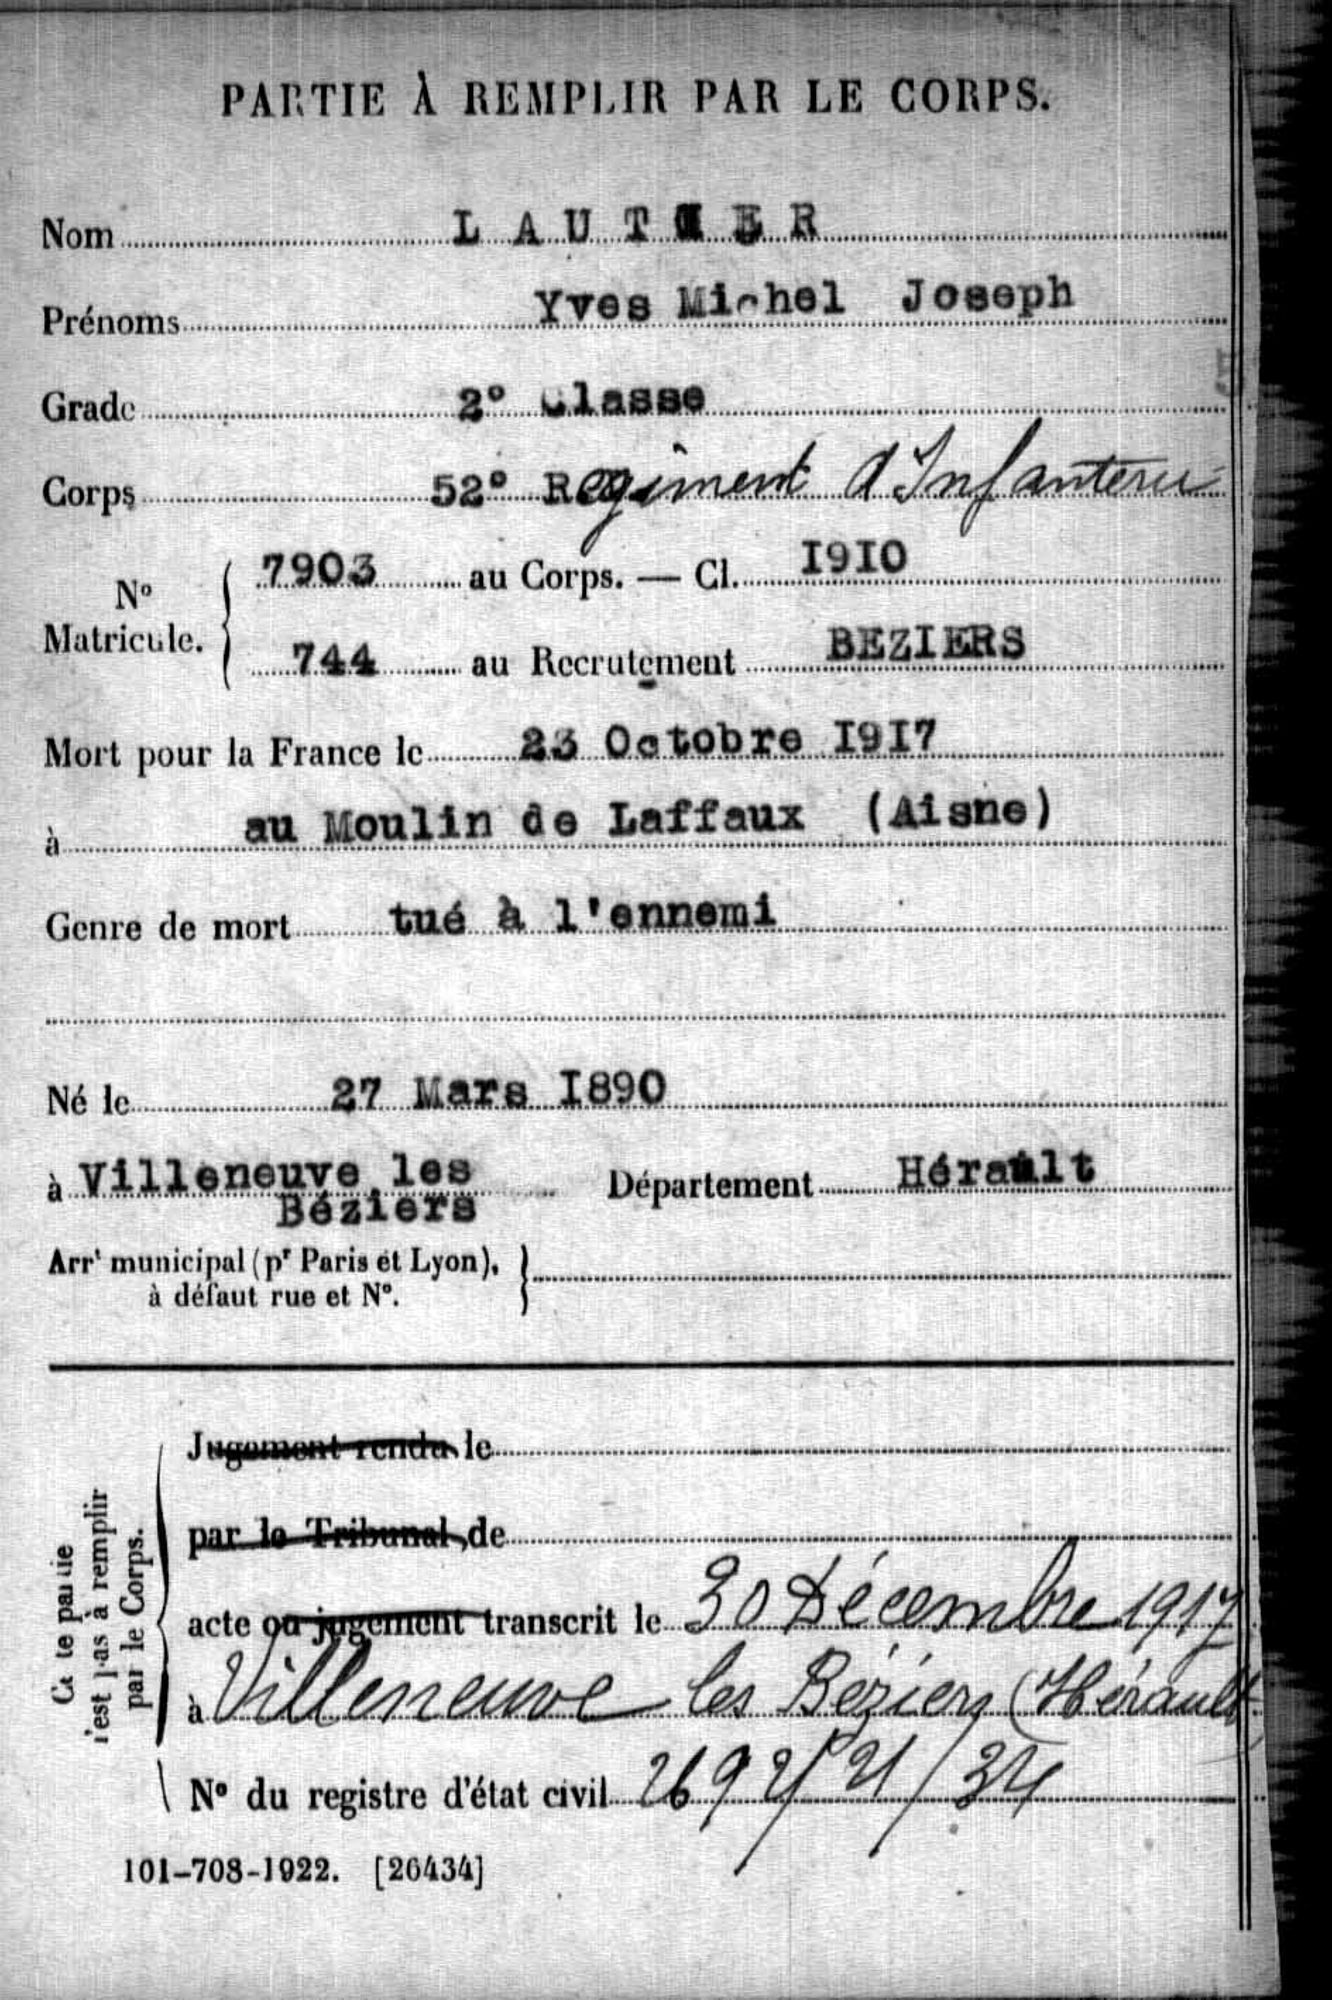 PARTIE À REMPLIR PAR LE CORPS.
Nom LAUTIER
Prénoms Yves Michel Joseph
Grade 2° Classe
Corps 52° Régiment d'Infanterie
N° Matricule. 7903 au Corps. — Cl. I9I0
744 au Recrutement BEZIERS
Mort pour la France le 23 Octobre I9I7
à au Moulin de Laffaux (Aisne)
Genre de mort tué à l'ennemi
Né le 27 Mars I890
à Villeneuve les Béziers Département Hérault
Arrt municipal (pr Paris et Lyon), à défaut rue et N°.
Cette partie n'est pas à remplir par le Corps.
Jugement rendu le
par le Tribunal de
acte ou jugement transcrit le 30 Décembre 1917
à Villeneuve les Béziers (Hérault)
N° du registre d'état civil
101-708-1922. [26434]